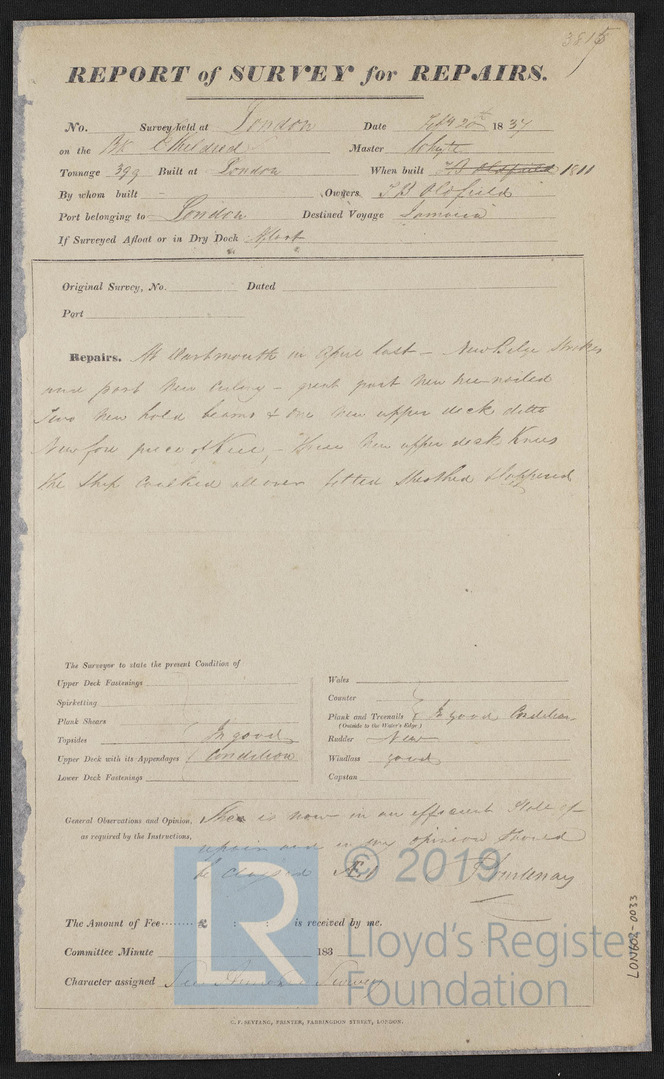 3815
REPORT of SURVEY for REPAIRS.
No. Survey held at London Date Feby 20th 1837
on the Bk Childred Master Whyte
Tonnage 399 Built at London When built 1811
By whom built - Owners T B Oldfield
Port belonging to London Destined Voyage Jamaica
If Surveyed Afloat or in Dry Dock Afloat
Original Survey, No. Dated
Port
Repairs. At Dartmouth in April last - New Bilge Strakes
part New - great part New
Two New hold beams & One New upper deck ditto
New fore piece of Keel, - Three New upper deck Knees
the Ship Caulked all over felted Sheathed & Coppered
The Surveyor to state the present Condition of
Upper Deck Fastenings
Spirketting
Plank Shears
Topsides In good
Upper Deck with its Appendages Condition
Lower Deck Fastenings
Wales
Counter
Plank and Treenails In good Condition
(Outside to the Water's Edge)
Rudder New
Windlass good
Capstan
General Observations and Opinion, She is now in an efficient State of
as required by the Instructions, repair and in my opinion should
be classed
The Amount of Fee £ : : is received by me.
Committee Minute 183
Character assigned
C. F. SEYFANG, PRINTER, FARRINGDON STREET, LONDON.
LON602-0033
LR
© 2019
Lloyd's Register
Foundation